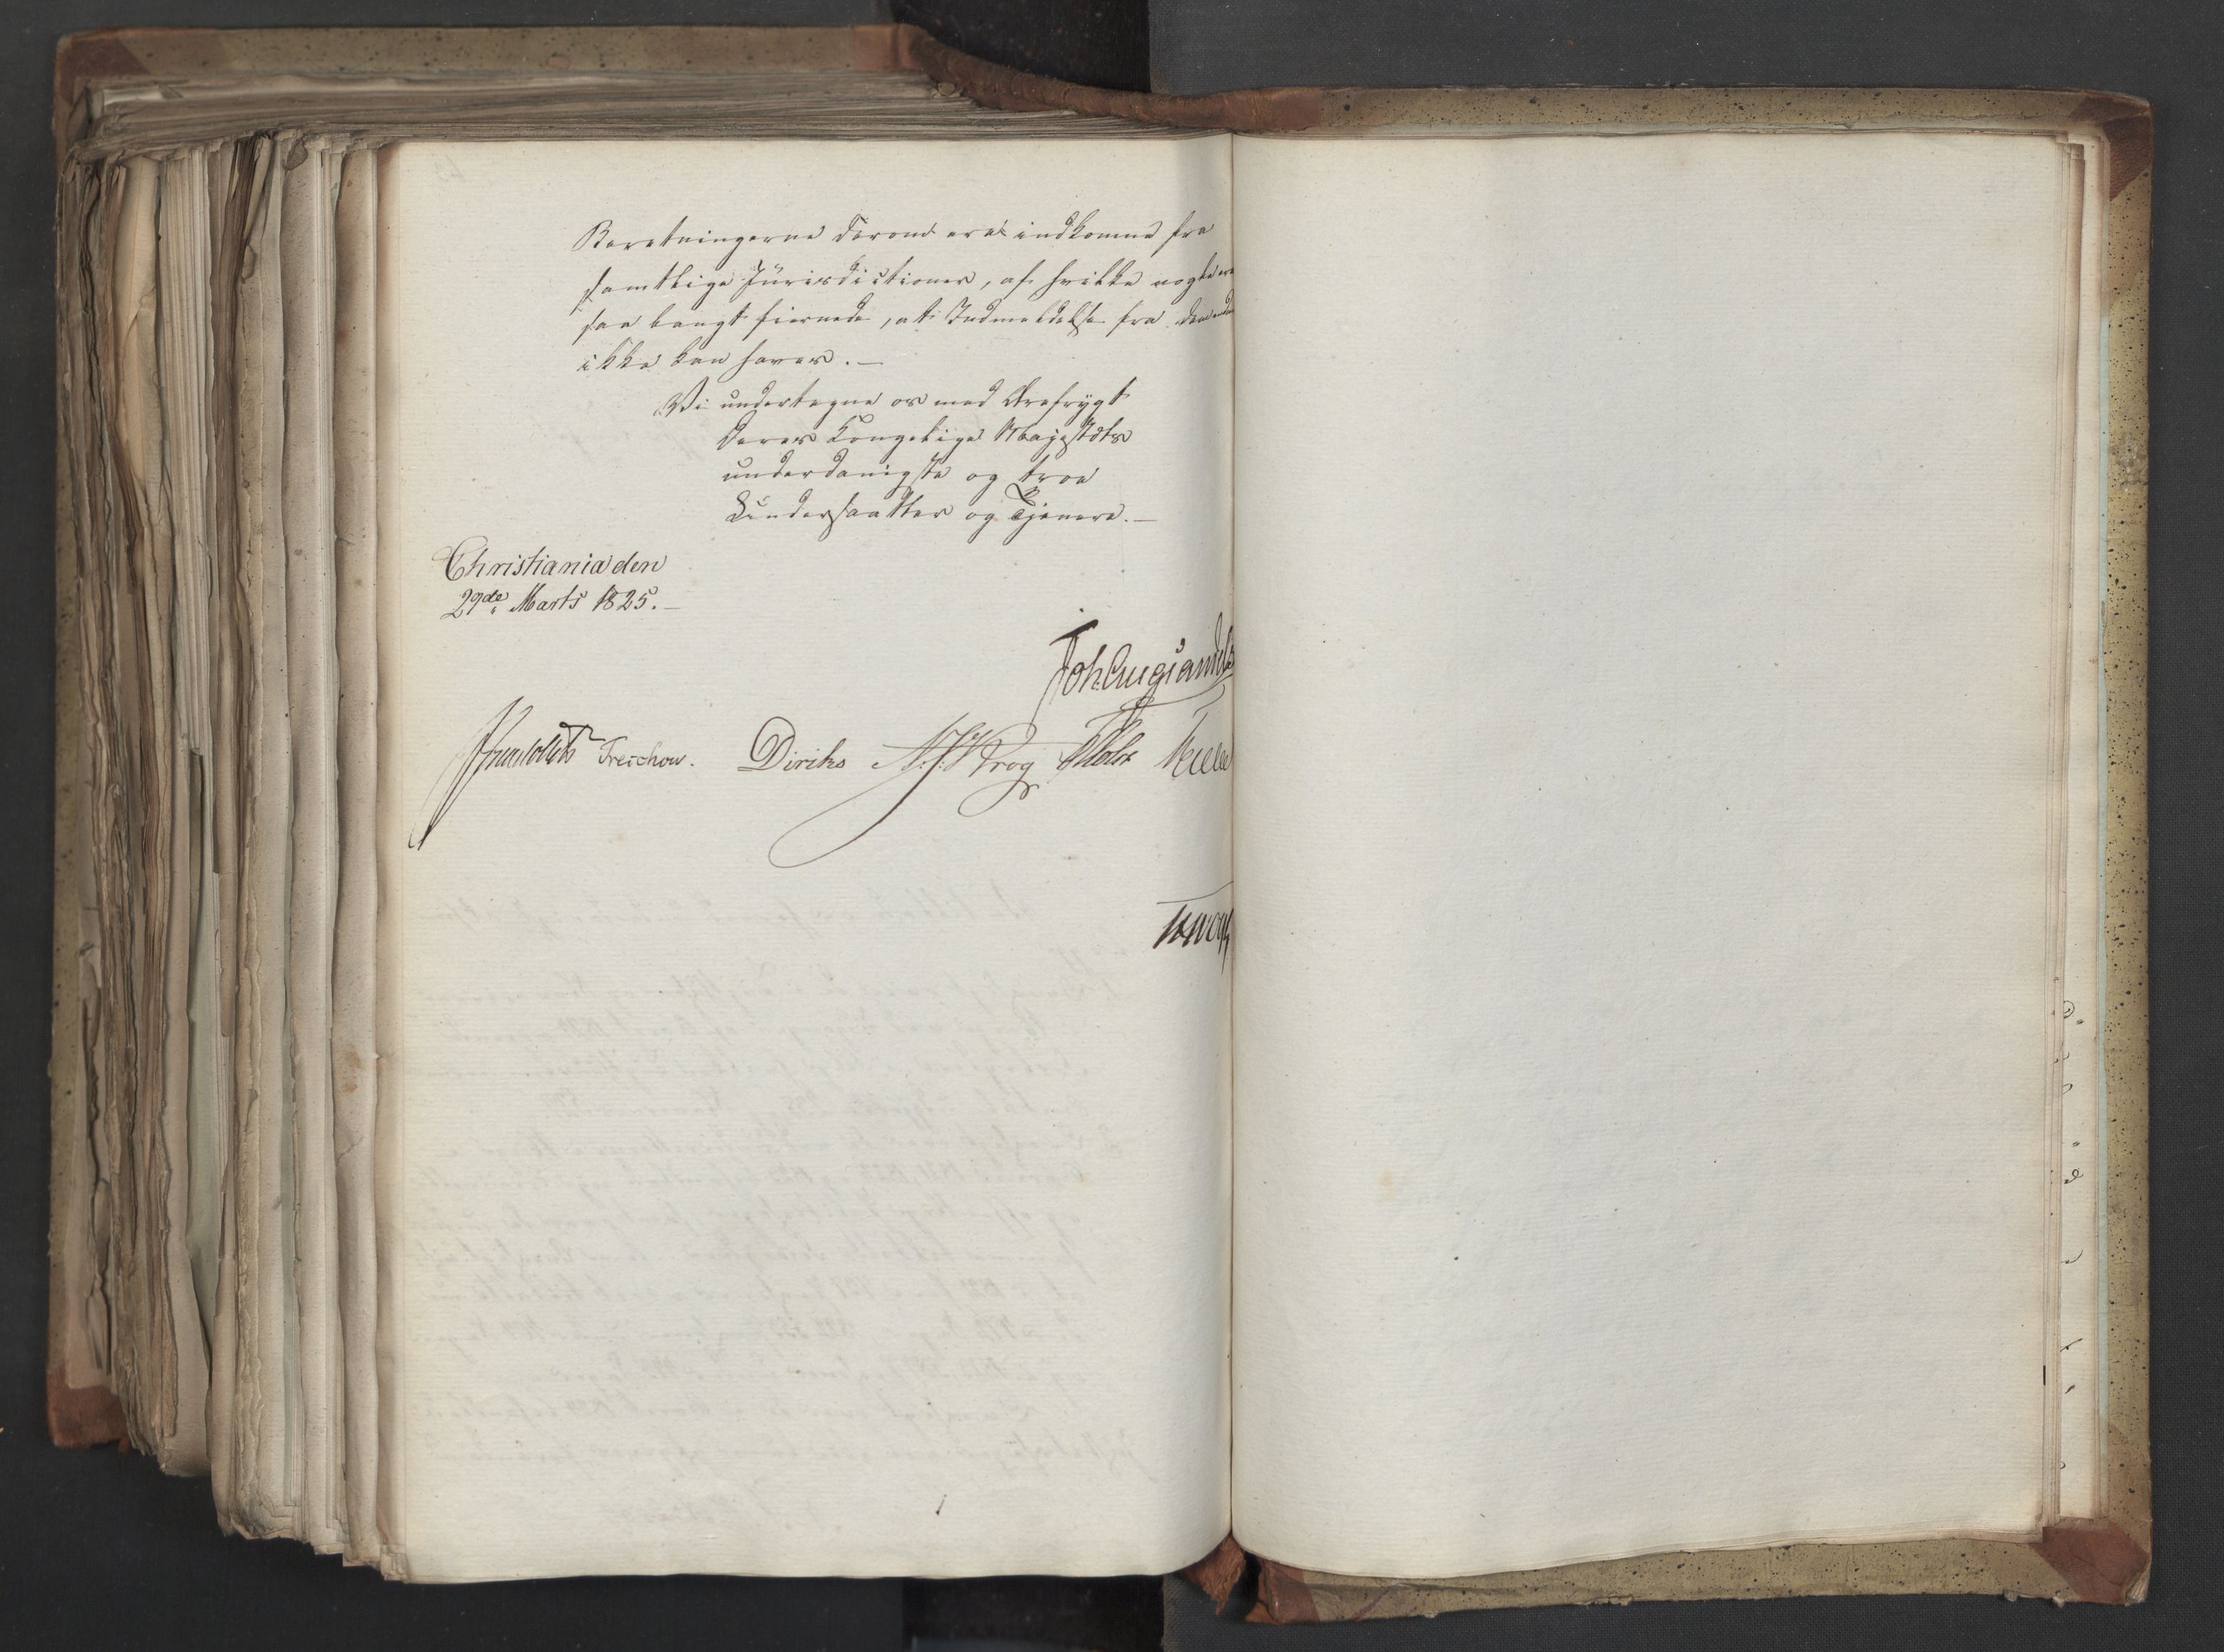 Beretningerne derom ere indkomne fra
samtlige Jurisdictioner, af hvilke nogle ere
saa langt fiernede, at Indmeldelse fra dem endnu
ikke kan haves. —
Vi undertegne os med Ærefrygt
Deres Kongelige Majestæts
underdanigste og troe
Undersaatter og Tjenere. —
Christiania den
29de Marts 1825. —
Joh. Aug. Sandels
Treschow. Diriks N. J. Krog